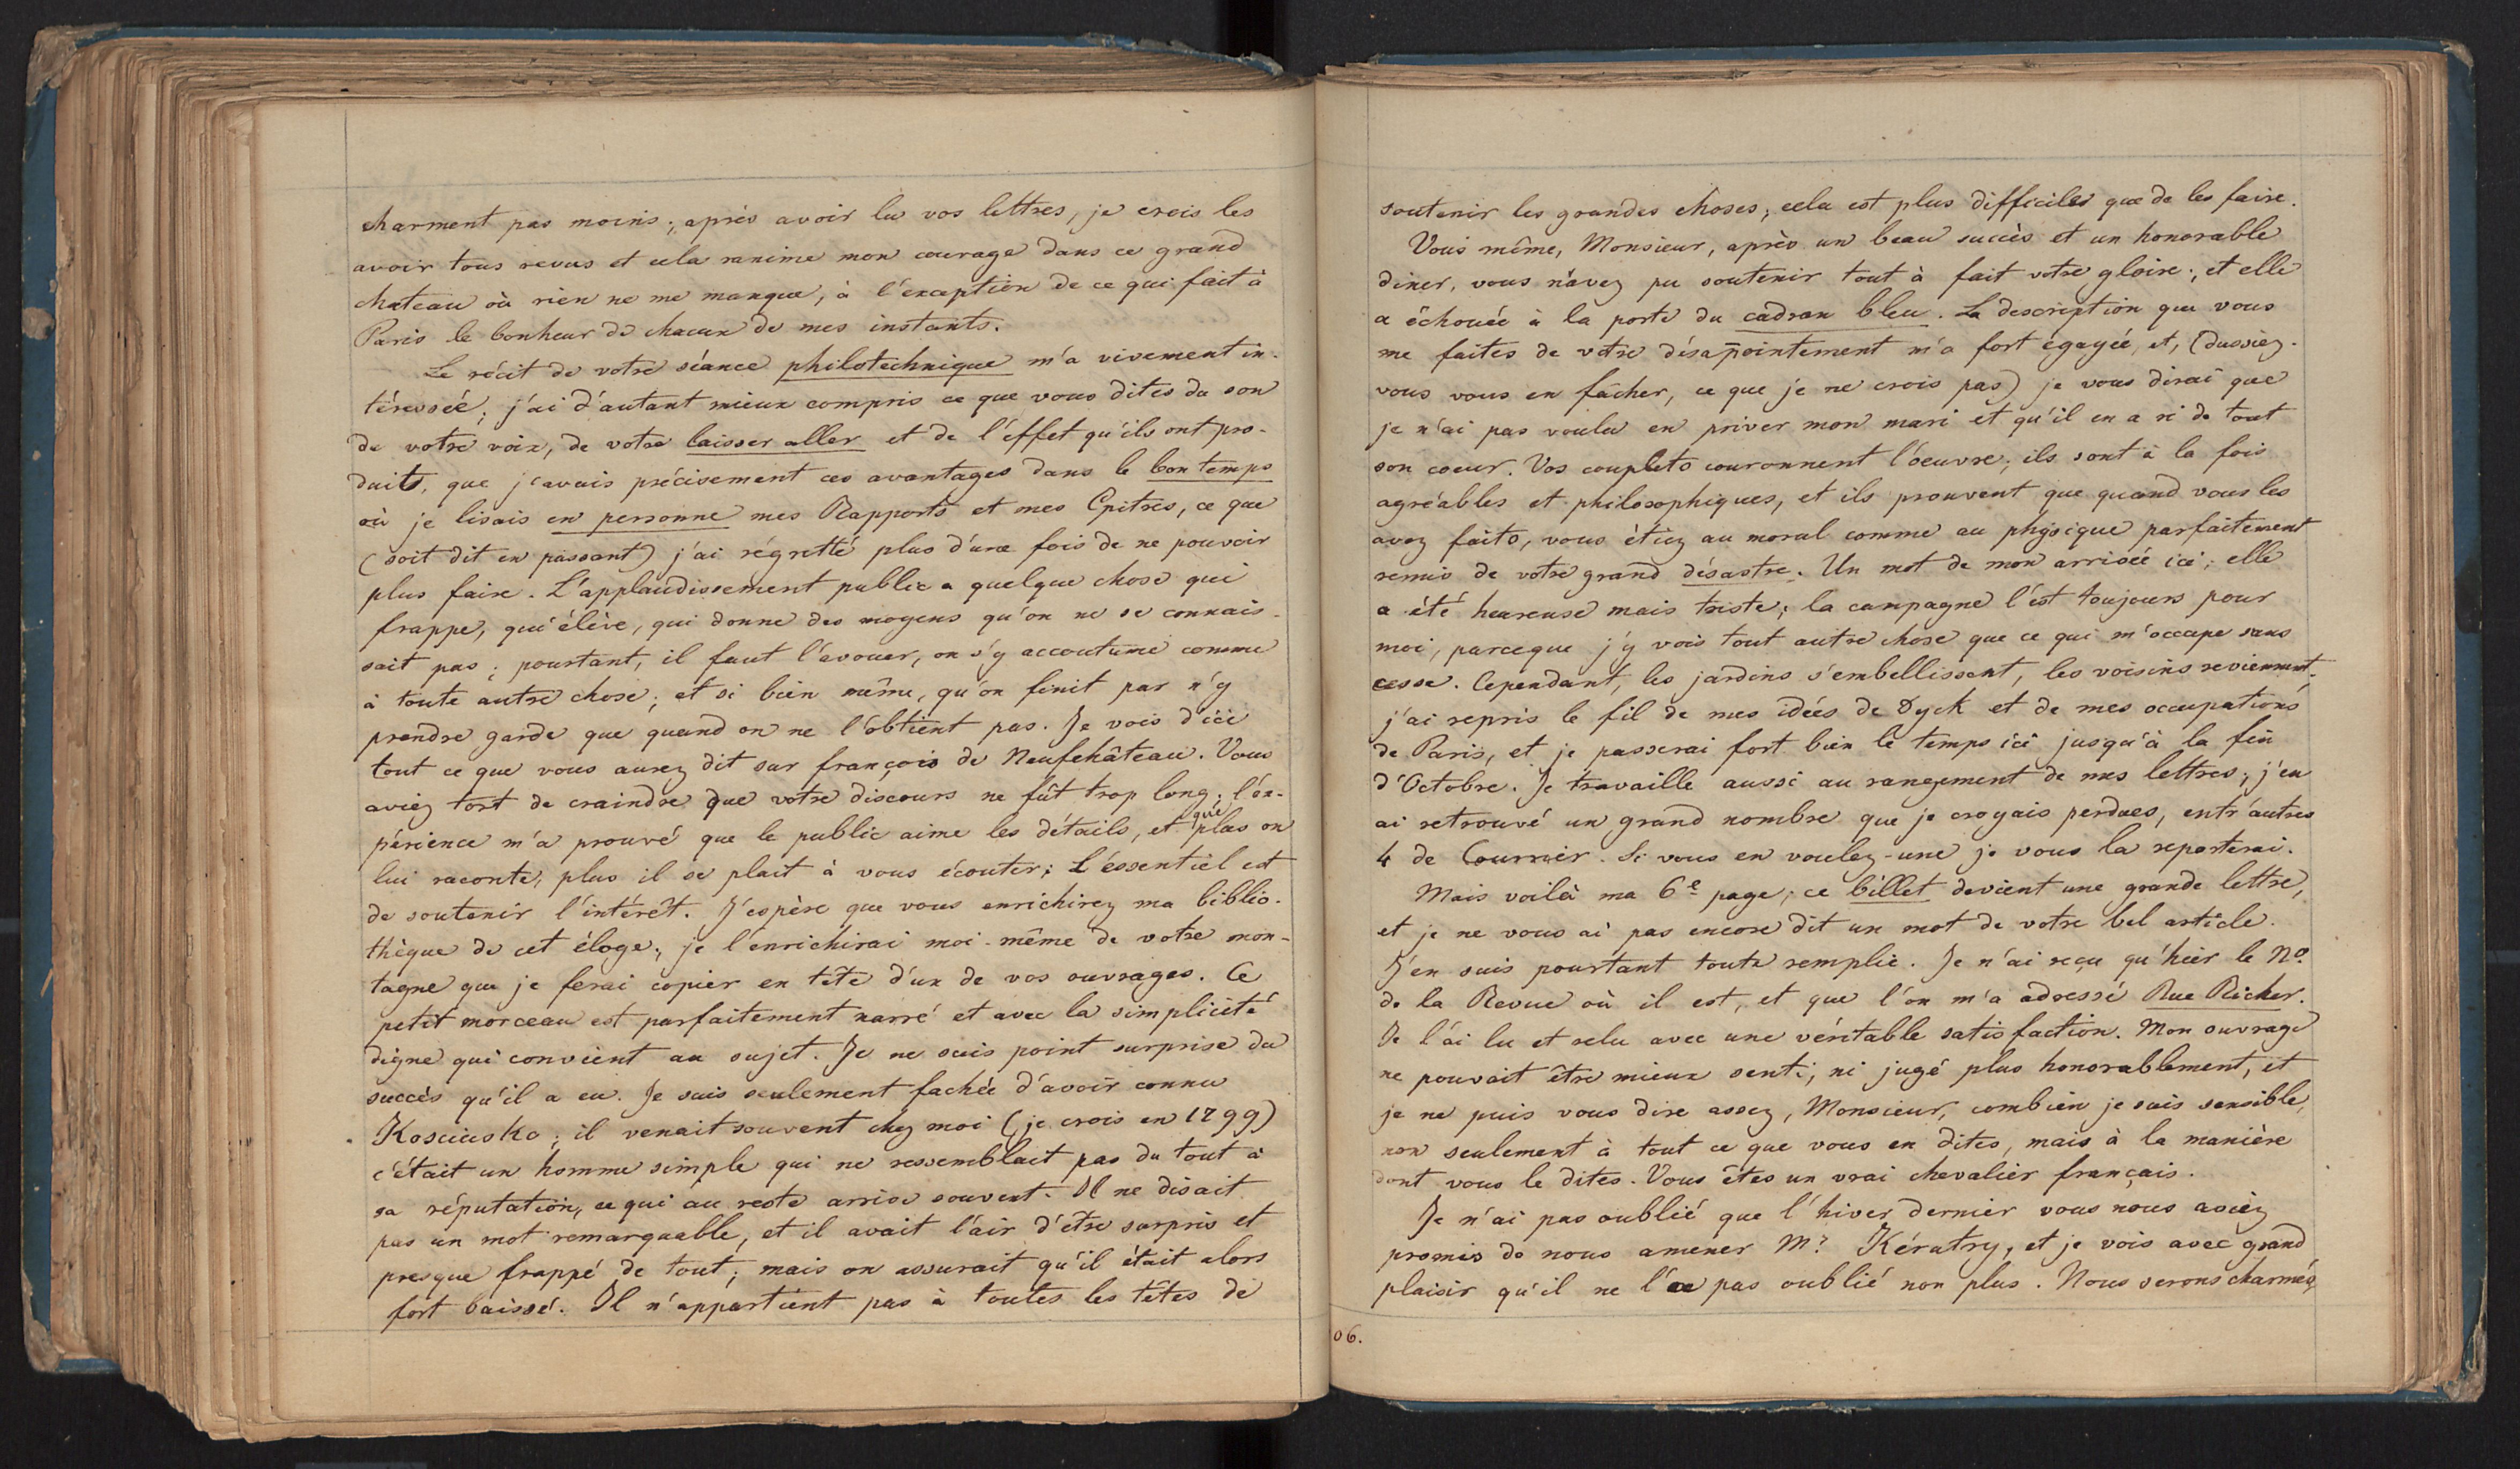 charment pas moins; après avoir lu vos lettres, je crois les
avoir tous revus et cela ranime mon courage dans ce grand
chateau où rien ne me manque, à l'exception de ce qui fait à
Paris le bonheur de chacun de mes instants.
Le récit de votre séance philotechnique m'a vivement in-
téressée; j'ai d'autant mieux compris ce que vous dites du son
de votre voix, de votre laisser aller et de l'éffet qu'ils ont pro-
duits, que j'avais précisement ces avantages dans le bon temps
où je lisais en personne mes Rapports et mes Epitres, ce que
(soit dit en passant) j'ai régretté plus d'une fois de ne pouvoir
plus faire. L'applaudissement public a quelque chose qui
frappe, qui élève, qui donne des moyens qu'on ne se connais-
sait pas; pourtant, il faut l'avouer, on s'y accoutume comme
à toute autre chose; et si bien même, qu'on finit par n'y
prendre garde que quand on ne l'obtient pas. Je vois d'ici
tout ce que vous aurez dit sur françois de Neufchâteau. Vous
aviez tort de craindre que votre discours ne fût trop long; l'ex-
périence m'a prouvé que le public aime les détails, et que plus on
lui raconte, plus il se plait à vous écouter; L'éssentiel est
de soutenir l'intérêt. J'espère que vous enrichirez ma biblio-
thèque de cet éloge; je l'enrichirai moi-même de votre mon-
tagne que je ferai copier en tête d'un de vos ouvrages. Ce
petit morceau est parfaitement narré et avec la simplicité
digne qui convient au sujet. Je ne suis point surprise du
succès qu'il a eu. Je suis seulement fachée d'avoir connu
Kosciusko; il venait souvent chez moi (je crois en 1799)
c'était un homme simple qui ne ressemblait pas du tout à
sa réputation, ce qui au reste arrive souvent. Il ne disait
pas un mot remarquable, et il avait l'air d'être surpris et
presque frappé de tout; mais on assurait qu'il était alors
fort baissé. Il n'appartient pas à toutes les têtes de
soutenir les grandes choses; cela est plus difficile que de les faire.
Vous même, Monsieur, après un beau succès et un honorable
diner, vous n'avez pu soutenir tout à fait votre gloire; et elle
a échouée à la porte du cadran bleu. La description que vous
me faites de votre désapointement m'a fort égayée, et, (dussiez-
vous vous en fâcher, ce que je ne crois pas) je vous dirai que
je n'ai pas voulu en priver mon mari et qu'il en a ri de tout
son coeur. Vos couplets couronnent l'oeuvre; ils sont à la fois
agréables et philosophiques, et ils prouvent que quand vous les
avez faits, vous étiez au moral comme au physique parfaitement
remis de votre grand désastre. Un mot de mon arrivée ici; elle
a été heureuse mais triste; la campagne l'est toujours pour
moi, parceque j'y vois tout autre chose que ce qui m'occupe sans
cesse. Cependant, les jardins s'embellissent, les voisins reviennent,
j'ai repris le fil de mes idées de Dyck et de mes occupations
de Paris, et je passerai fort bien le temps ici jusqu'à la fin
d'Octobre. Je travaille aussi au rangement de mes lettres; j'en
ai retrouvé un grand nombre que je croyais perdues, entr'autres
4 de Courrier. Si vous en voulez-une je vous la reporterai.
Mais voilà ma 6e page; ce billet devient une grande lettre,
et je ne vous ai pas encore dit un mot de votre bel article.
J'en suis pourtant toute remplie. Je n'ai reçu qu'hier le No.
de la Revue où il est, et que l'on m'a adressé Rue Richer.
Je l'ai lu et relu avec une véritable satisfaction. Mon ouvrage
ne pouvait être mieux senti, ni jugé plus honorablement, et
je ne puis vous dire assez, Monsieur, combien je suis sensible,
non seulement à tout ce que vous en dites, mais à la manière
dont vous le dites. Vous êtes un vrai chevalier français.
Je n'ai pas oublié que l'hiver dernier vous nous aviez
promis de nous amener Mr. Kératry, et je vois avec grand
plaisir qu'il ne l'a pas oublié non plus. Nous serons charmés,
06.